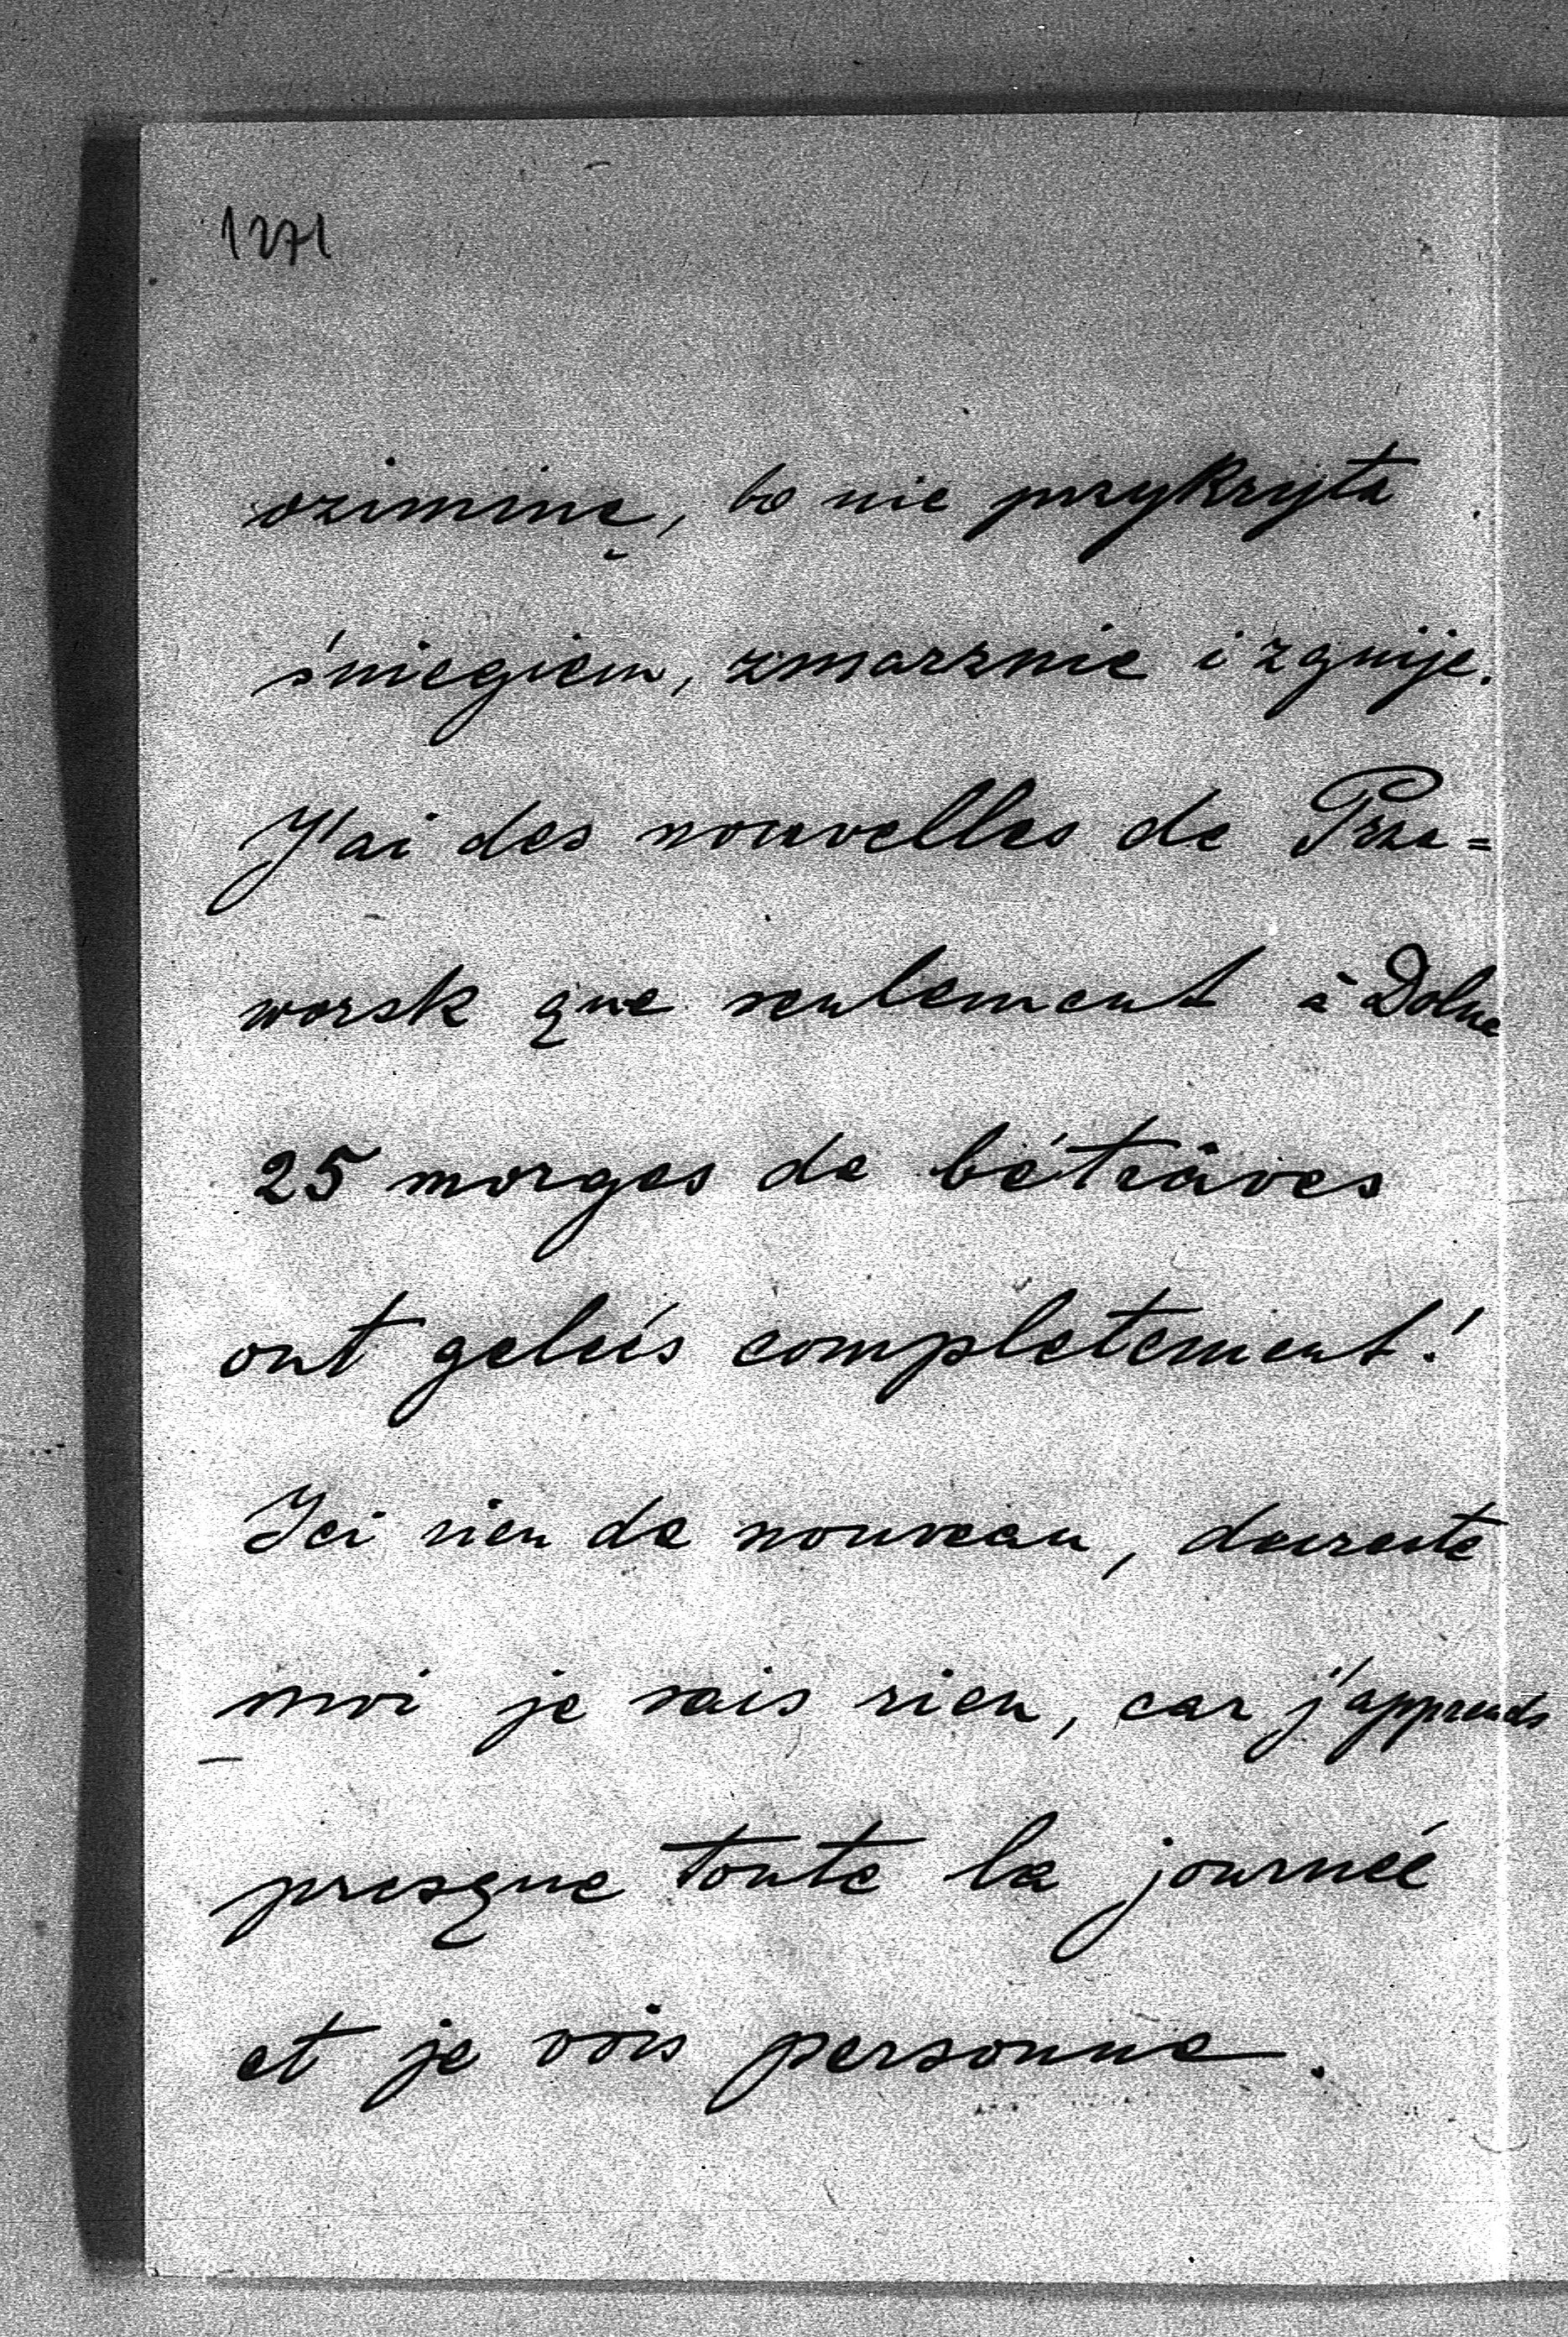 1271
oziminę, bo nie przykryta
śniegiem, zmarznie i zgnije.
J'ai des nouvelles de Prze=
worsk que seulement à Dolne
25 morges de bétràves
ont geleés completement!
Ici rien de nouveau, dureste
moi je sais rien, car j'apprends
presque toute la journeé
et je vois personne.